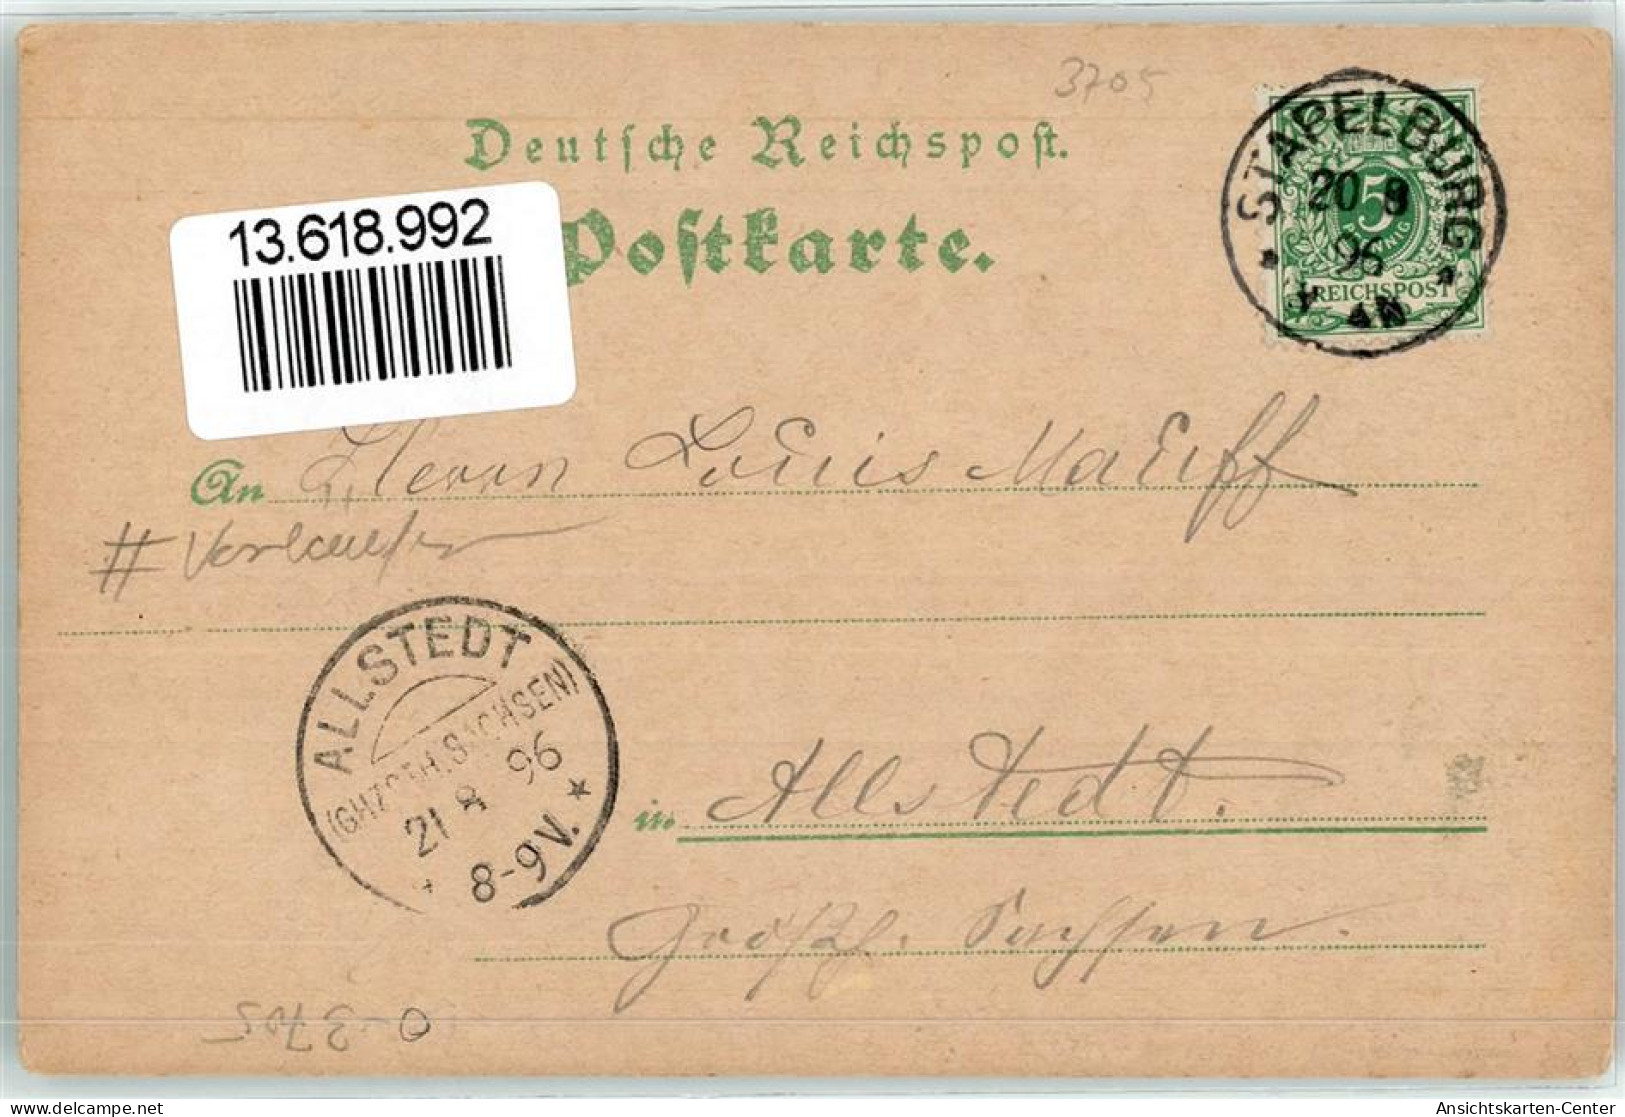 3705
Deutsche Reichspost.
Postkarte.
13.618.992
STAPELBURG
20 8
96
4 N
5
PFENNIG
REICHSPOST
An Herrn Louis Mauff
# Vorläufer
ALLSTEDT
(GHZGTH. SACHSEN)
21 8 96
8-9 V.
in Allstedt.
Großh. Sachsen.
0-3705
delcampe.net
Ansichtskarten-Center